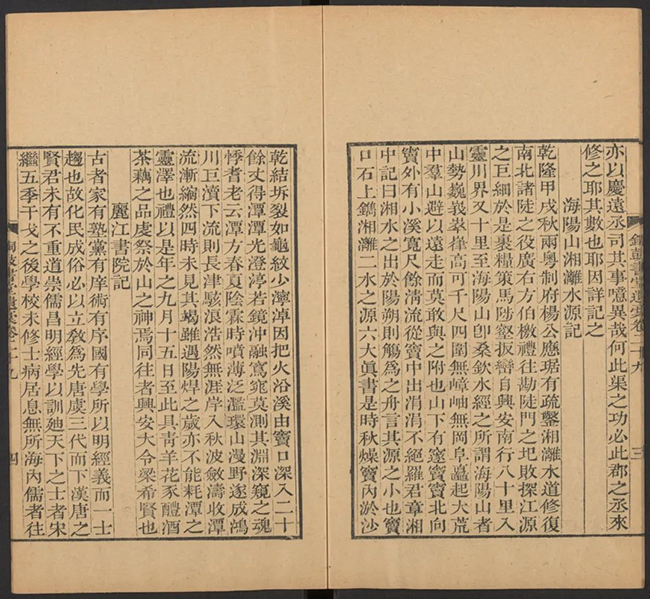 亦以慶遠丞司其事噫異哉何此渠之功必此郡之丞來
修之耶其數也耶因詳記之
海陽山湘灕水源記
乾隆甲戌秋兩粵制府楊公應琚有疏鑿湘灕水道修復
南北諸陡之役廣右方伯檄禮往勘陡門之圯敗探江源
之巨細於是裹糧策馬陟壑扳巒自興安南行八十里入
靈川界又十里至海陽山卽桑欽水經之所謂海陽山者
山勢巍峩崒嵂高可千尺四圍無嶂岫無岡阜矗起大荒
中羣山避以遠走而莫敢與之附也山下有竇竇北向
竇外有小溪寬尺餘淸流從竇中出涓涓不絕羅君章湘
中記曰湘水之出於陽朔則觴爲之舟言其源之小也竇
口石上鐫湘灕二水之源六大眞書是時秋燥竇內淤沙
三
乾結坼裂如龜紋少濘淖因把火浴溪由竇口深入二十
餘丈得潭潭光澄渟若鏡沖融窵窕莫測其淵深窺之魂
悸耆老云潭方春夏陰霖時噴薄泛濫環山漫野遂成鴻
川巨瀆下流則長津駭浪浩然無涯岸入秋波斂濤收潭
流漸縮然四時未見其竭雖遇陽焊之歲亦不能耗潭之
靈澤也禮以是年之九月十五日至此具靑羊花豕醴酒
茶藕之品虔祭於山之神焉同往者興安大令梁希賢也
麗江書院記
古者家有塾黨有庠術有序國有學所以明經義而一士
趨也故化民成俗必以立敎爲先唐虞三代而下漢唐之
賢君未有不重道崇儒昌明經學以訓廸天下之士者宋
繼五季干戈之後學校未修士病居息無所海內儒者往
四